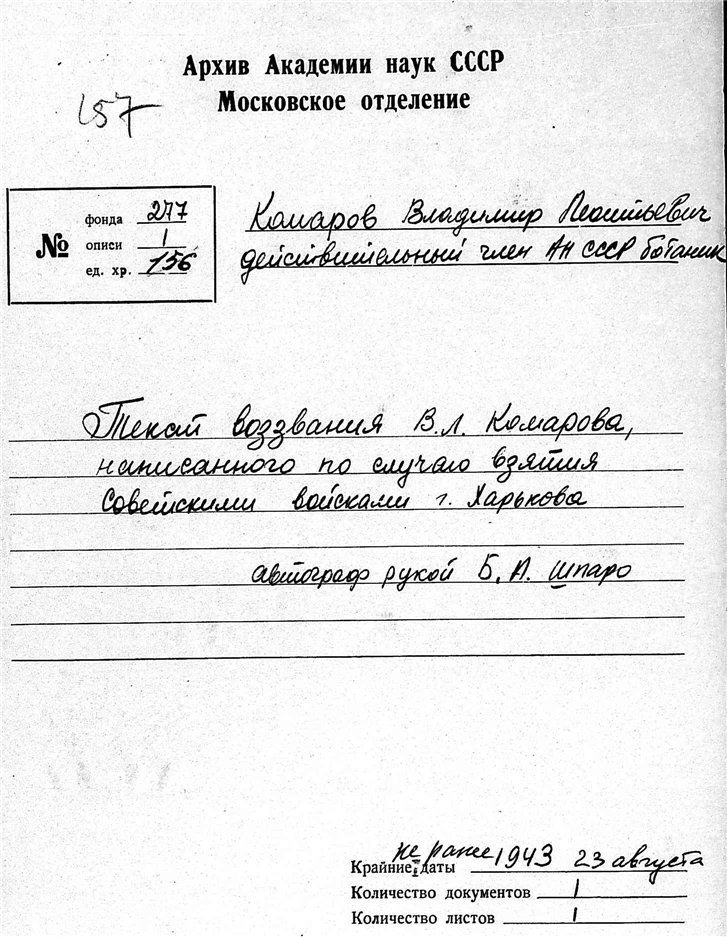 Архив Академии наук СССР
Московское отделение
157
№
фонда 277
описи 1
ед. хр. 156
Комаров Владимир Леонтьевич
действительный член АН СССР ботаник
Текст воззвания В.Л. Комарова,
написанного по случаю взятия
Советскими войсками г. Харькова
автограф рукой Б.А. Шпаро
Крайние даты не ранее 1943 23 августа
Количество документов 1
Количество листов 1